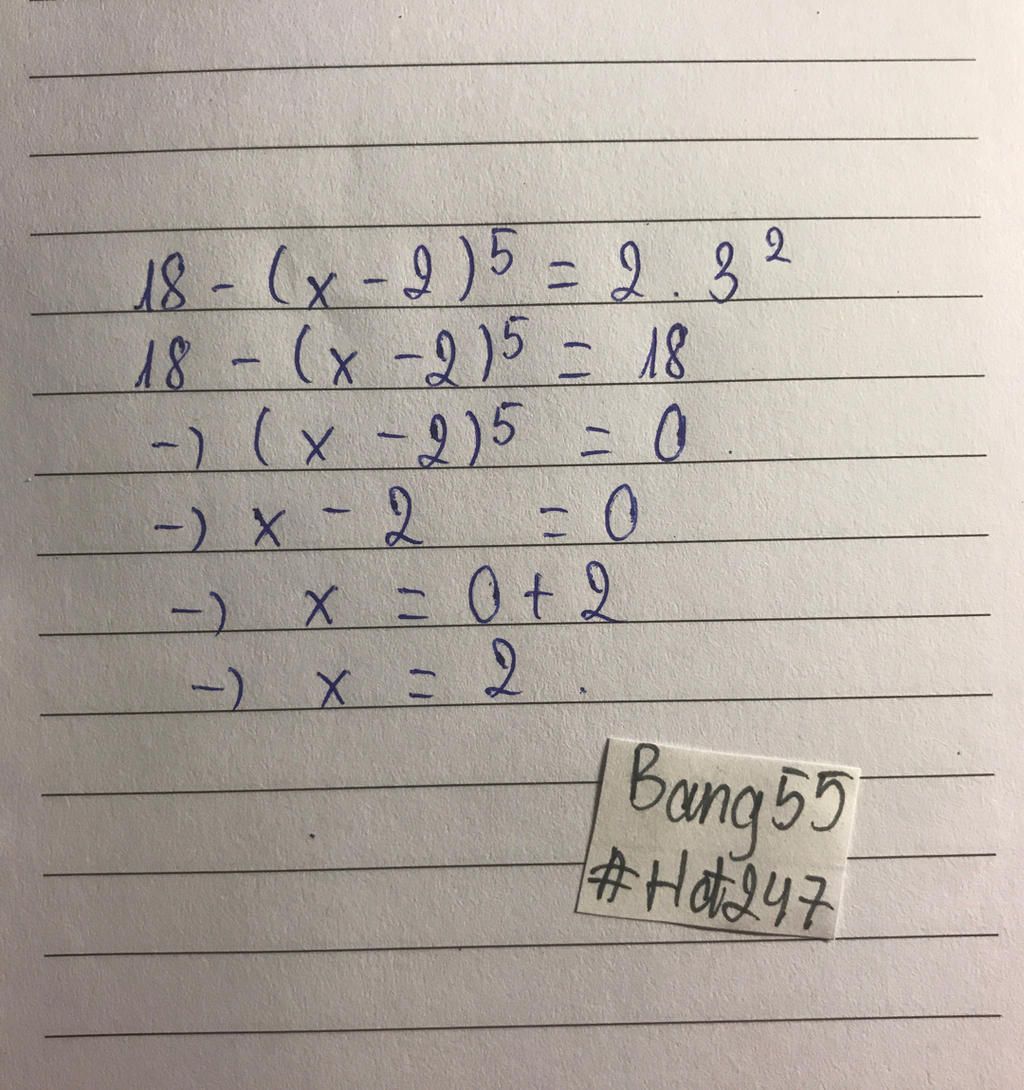 18 - (x - 2)⁵ = 2 . 3²
18 - (x - 2)⁵ = 18
-) (x - 2)⁵ = 0.
-) x - 2 = 0
-) x = 0 + 2
-) x = 2.
Bang55
#Hot247